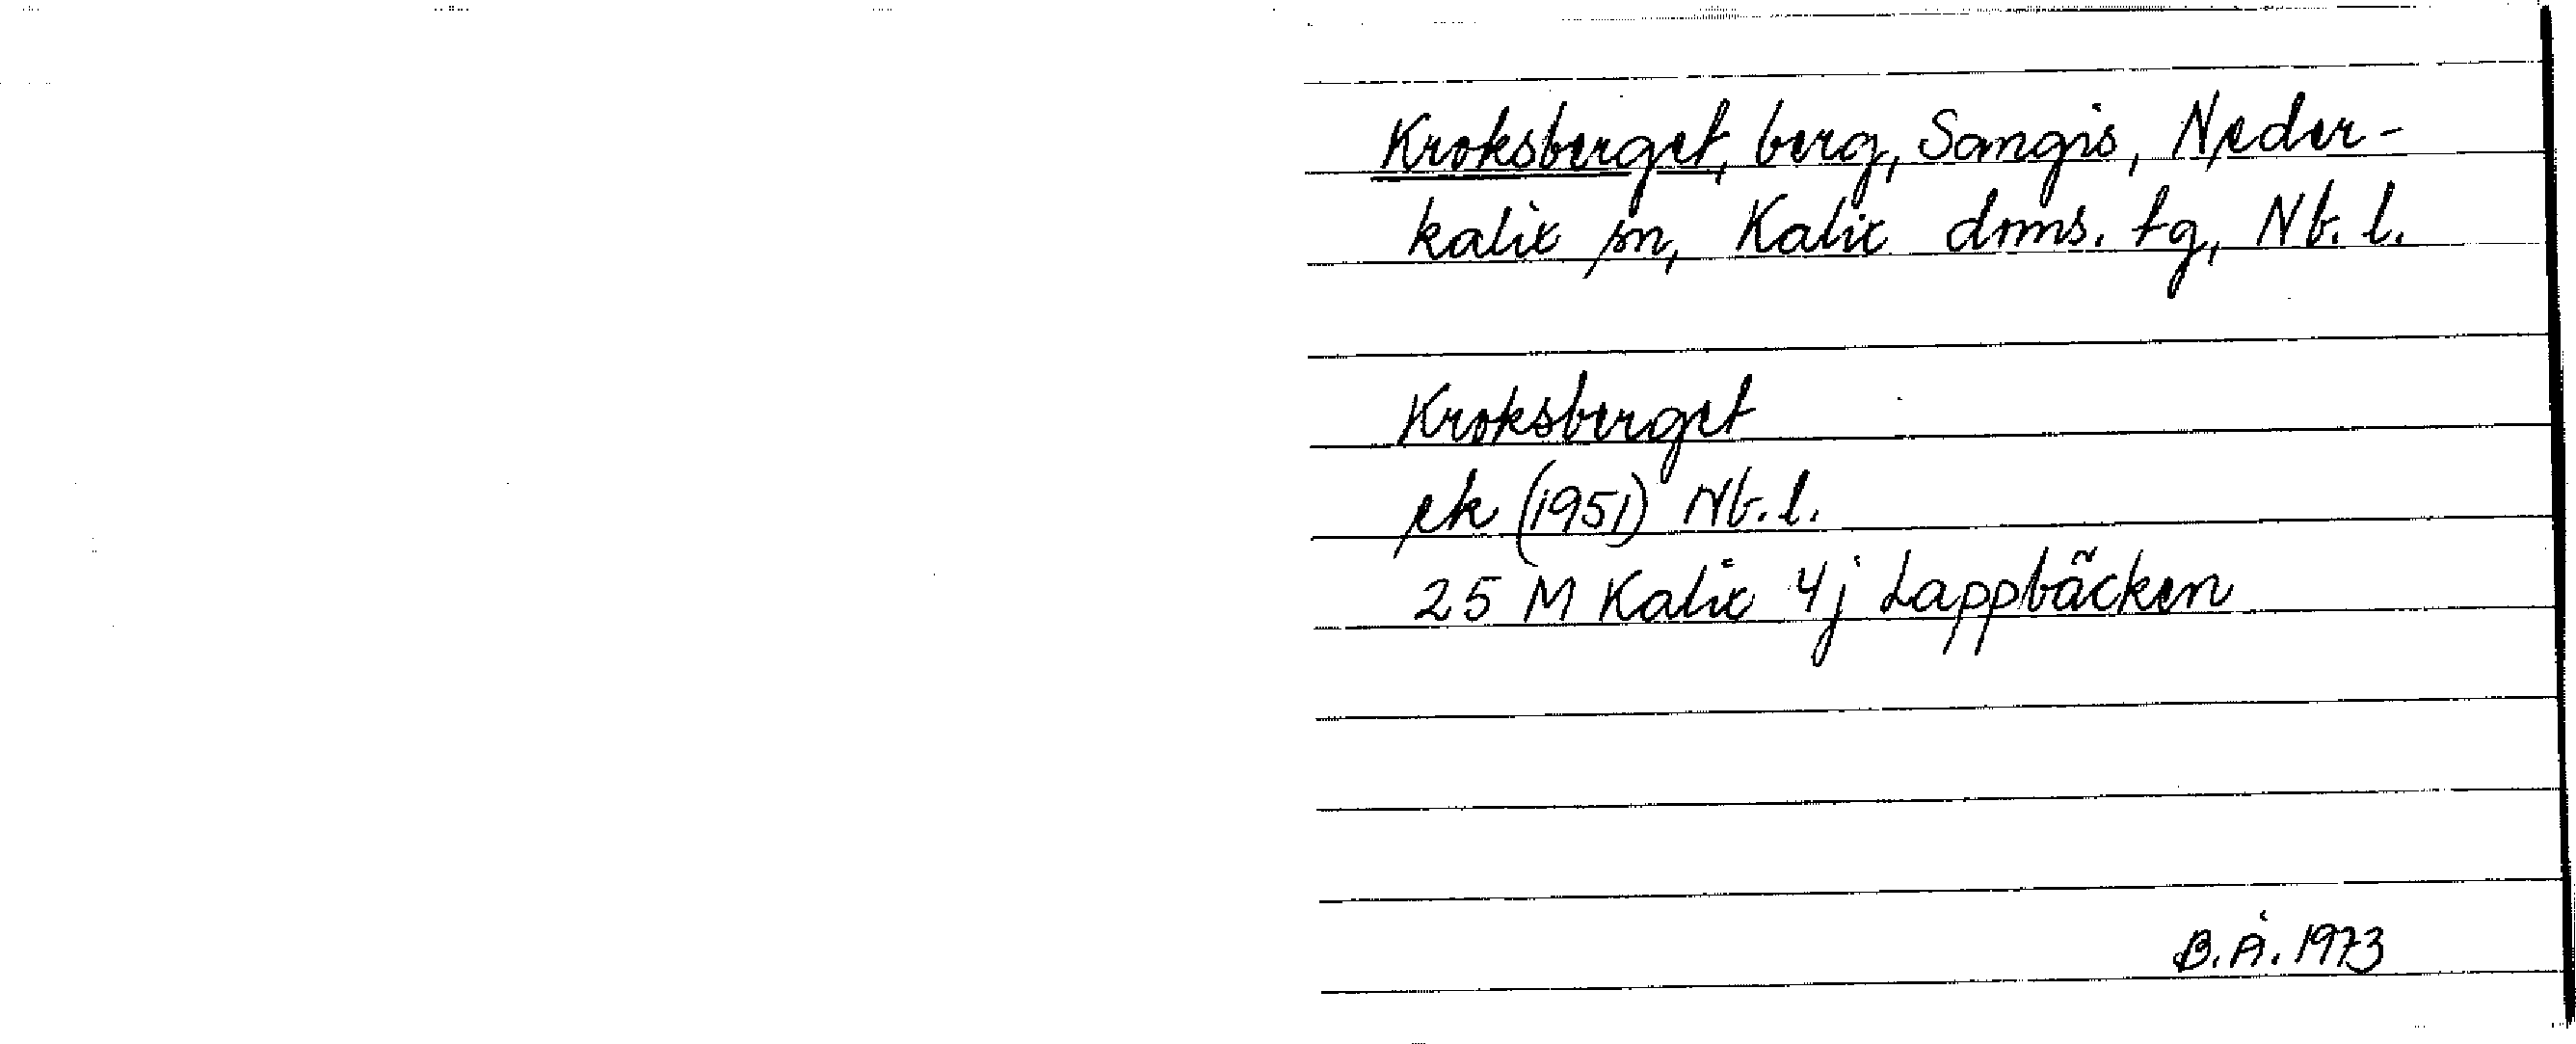 Kroksberget, berg, Sangis, Neder-
kalix sn, Kalix dms. tg, Nb. l.
Kroksberget
ek (1951) Nb. l.
25 M Kalix 4j Lappbäcken
B. Å. 1973